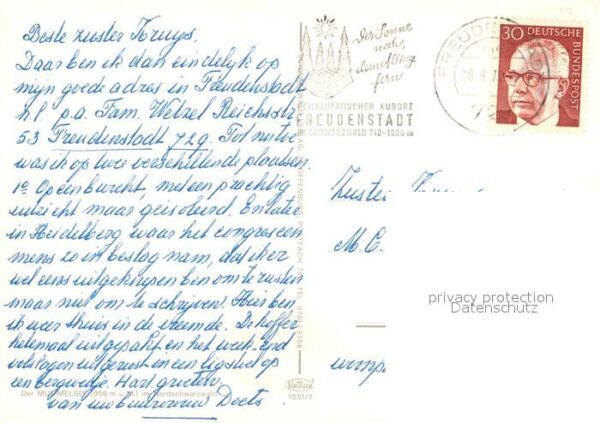 Beste zuster Kruys,
Daar ben ik dan eindelijk op
mijn goede adres in Freudenstadt
n.l. p.a. Fam. Wetzel Reichsstr
53 Freudenstadt 729. Tot nu toe
was ik op twee verschillende plaatsen.
1e Op een burcht, met een prachtig
uitzicht maar geisoleerd. En later
in Heidelberg waar het congres een
mens zo in beslag nam, dat ik er
wel eens uitgeknepen ben om te rusten
maar niet om te schrijven. Hier ben
ik weer thuis in de vreemde. De koffer
helemaal uitgepakt en het week-end
volslagen uitgerust in een ligstoel op
een bergweitje. Hart. groeten
van uw buurvrouw Doets
Der MUMMELSEE 1036 m ü. M. im Nordschwarzwald
Der Sonne
nah,
dem Alltag
fern
HEILKLIMATISCHER KURORT
FREUDENSTADT
SCHWARZWALD 740-1000 m
FREUD
20.8.7
30
DEUTSCHE
BUNDESPOST
Zuster
M.C.
privacy protection
Datenschutz
1551/7